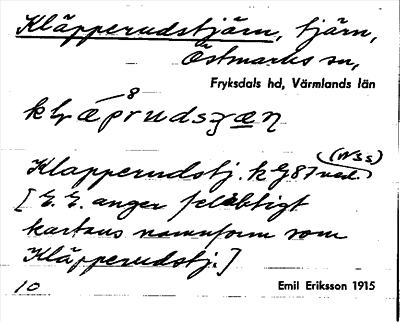 Kläpperudstjärn, tjärn,
Östmarks sn,
Fryksdals hd, Värmlands län
(NSs)
Klapperudstj. kG87 ned.
[E. E. anger felaktigt
kartans namnform som
Kläpperudstj.]
10. Emil Eriksson 1915